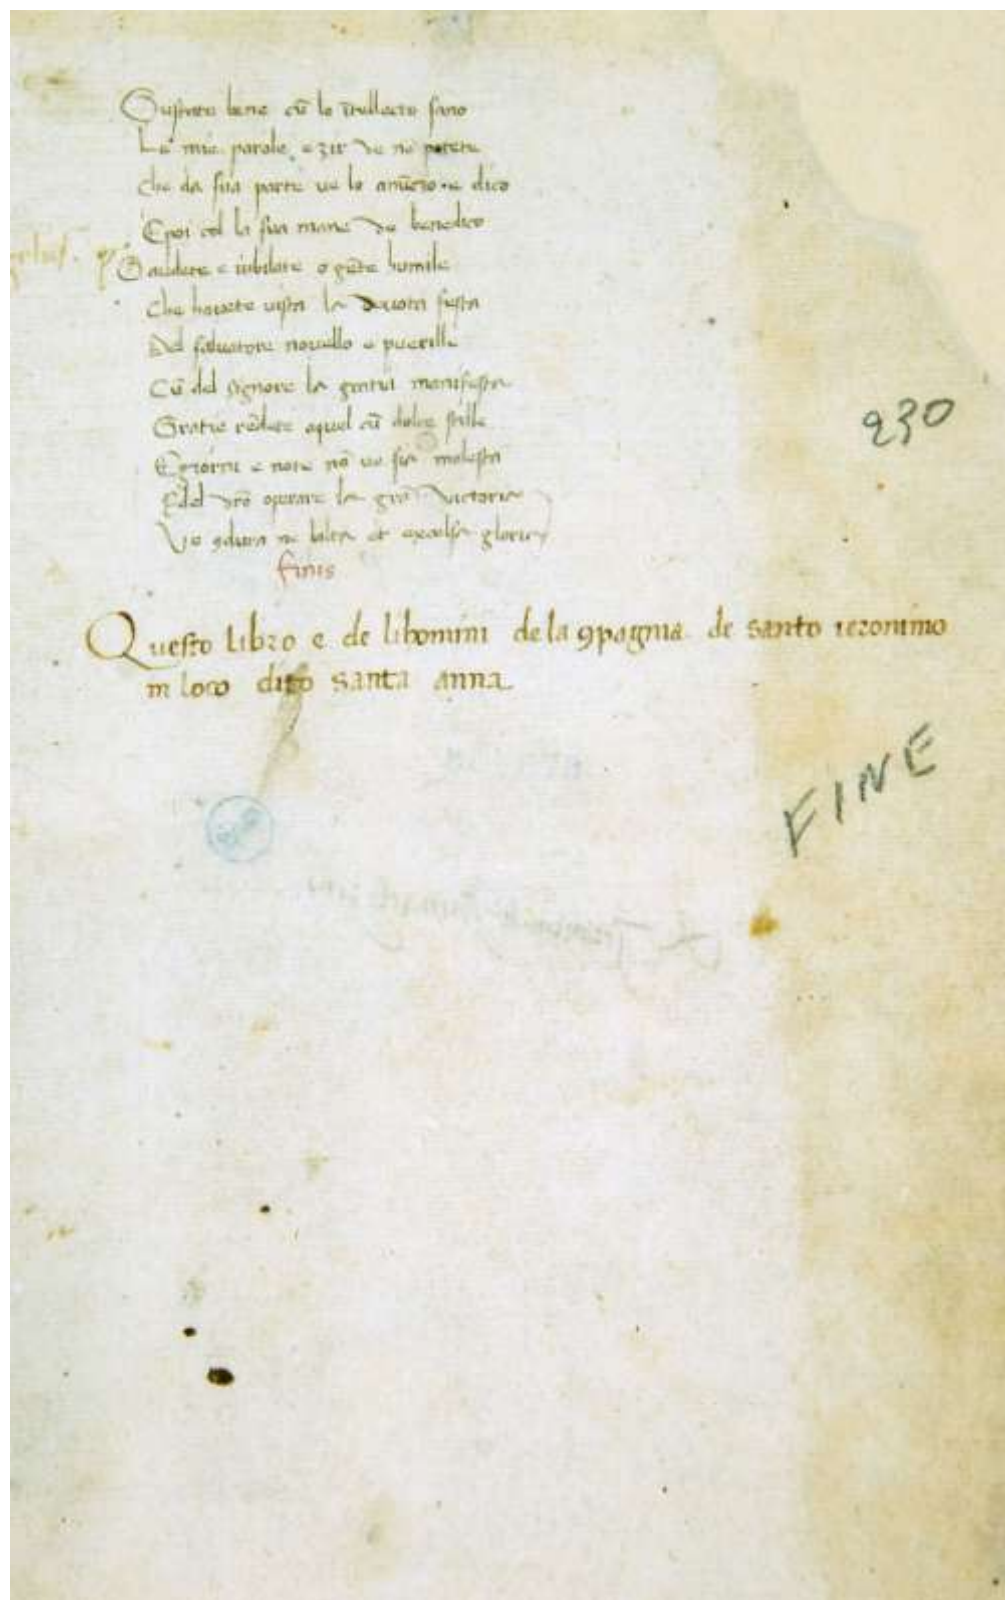 Gustate bene cū lo ītellecto sano
Le mie parole e zir ve ne potete
Che da sua parte ve lo anūtio e dico
Epoi col la sua mane ve benedico
Gaudete e iubilate o gēte humile
Che havete vista la devota festa
Del salvatore novello e puerille
Cū del signore la gratia manifesta
Gratie rēdete aquel cū dolce stille
Egiorni e note nō ve sia molesta
Edel vrō operare la grā victoria
Ve 9dura in lalta et excelsa gloria
finis
Questo libro e de lihomini de la 9pagnia de santo ieronimo
in loco dito santa anna
230
FINE